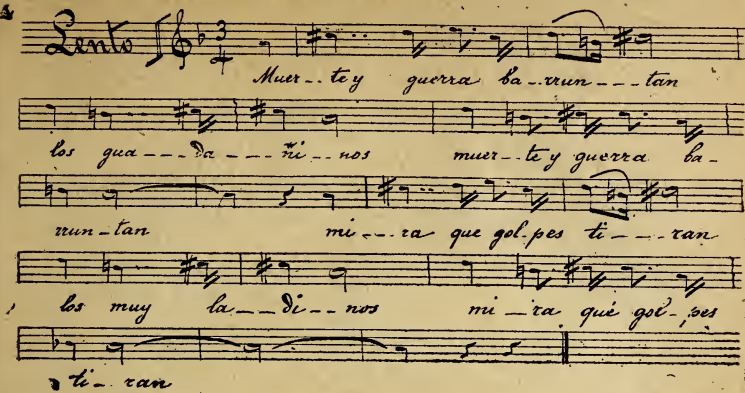 Lento 3 4
Muer--te y guerra ba--rrun---tan
los gua---da---ñi--nos muer--te y guerra ba-
rrun-tan mi---ra que gol-pes ti----ran
los muy la---di--nos mi--ra que gol-pes
ti-- ran